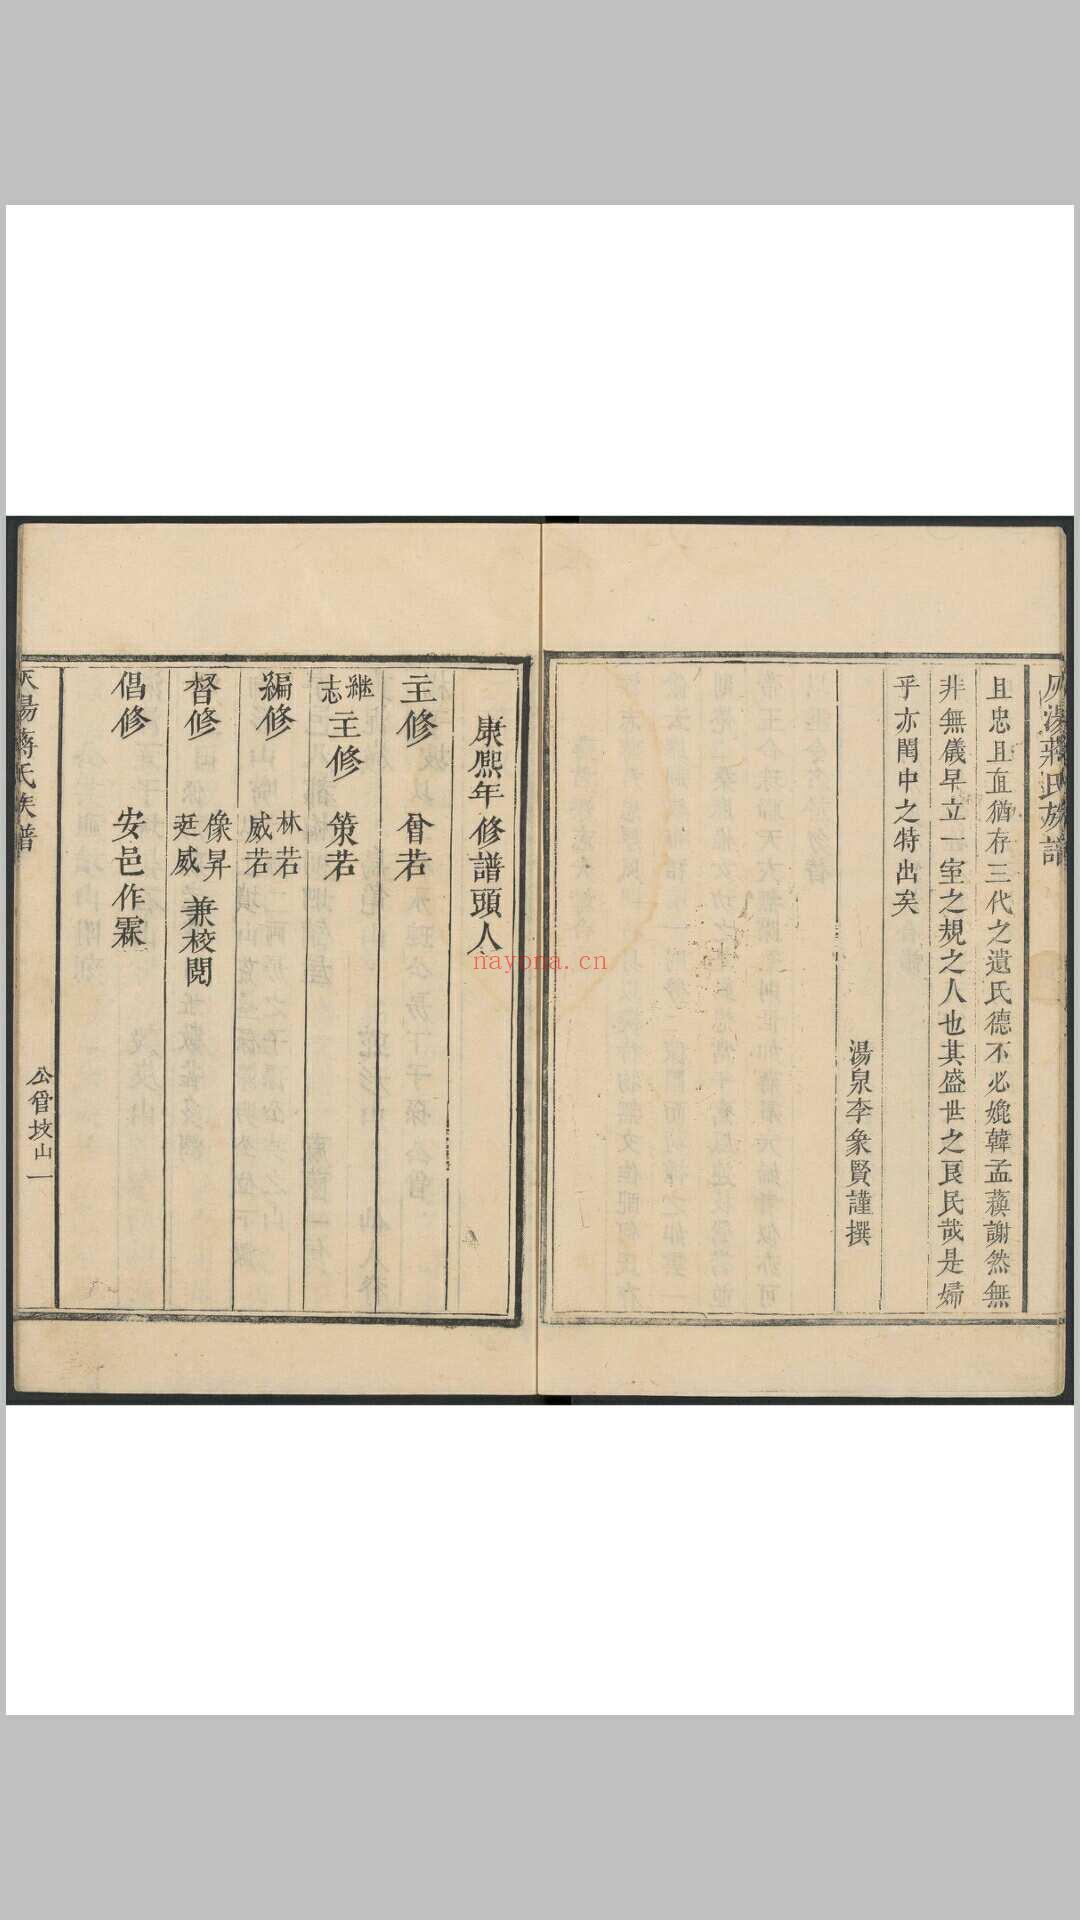 灰湯蔣氏族譜
且忠且直猶存三代之遺氏德不必媲韓孟蘋謝然無
非無儀早立一室之規之人也其盛世之良民哉是婦
乎亦閨中之特出矣
湯泉李象賢謹撰
康熈年修譜頭人
主修 曾若
継志主修 策若
編修 林若 威若
督修 像昇 莛威 兼校閱
倡修 安邑作霖
灰湯蔣氏族譜
公管坟山 一
nayona.cn